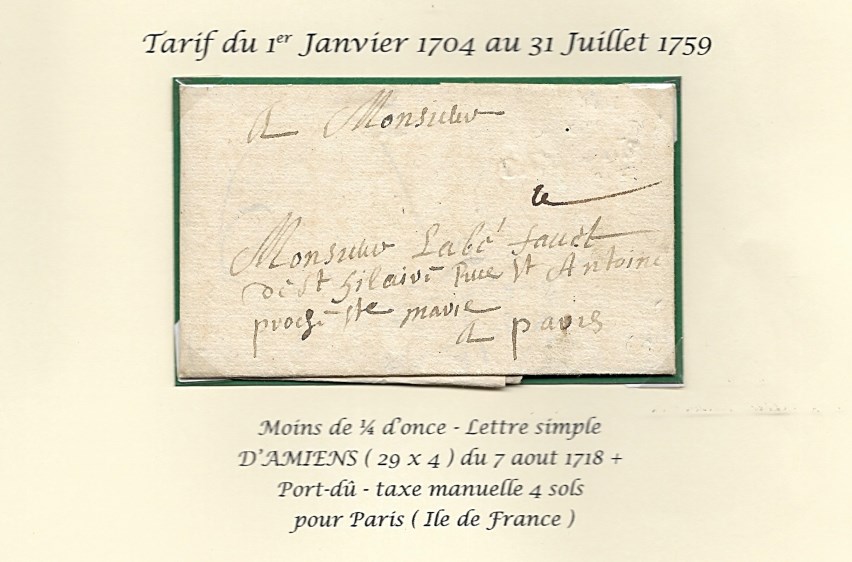 Tarif du 1er Janvier 1704 au 31 Juillet 1759
A Monsieur
Monsieur Labé fauel
de St hilaire Rue St Antoine
proche Ste marie
A paris
Moins de ¼ d'once - Lettre simple
D'AMIENS ( 29 x 4 ) du 7 aout 1718 +
Port-dû - taxe manuelle 4 sols
pour Paris ( Ile de France )